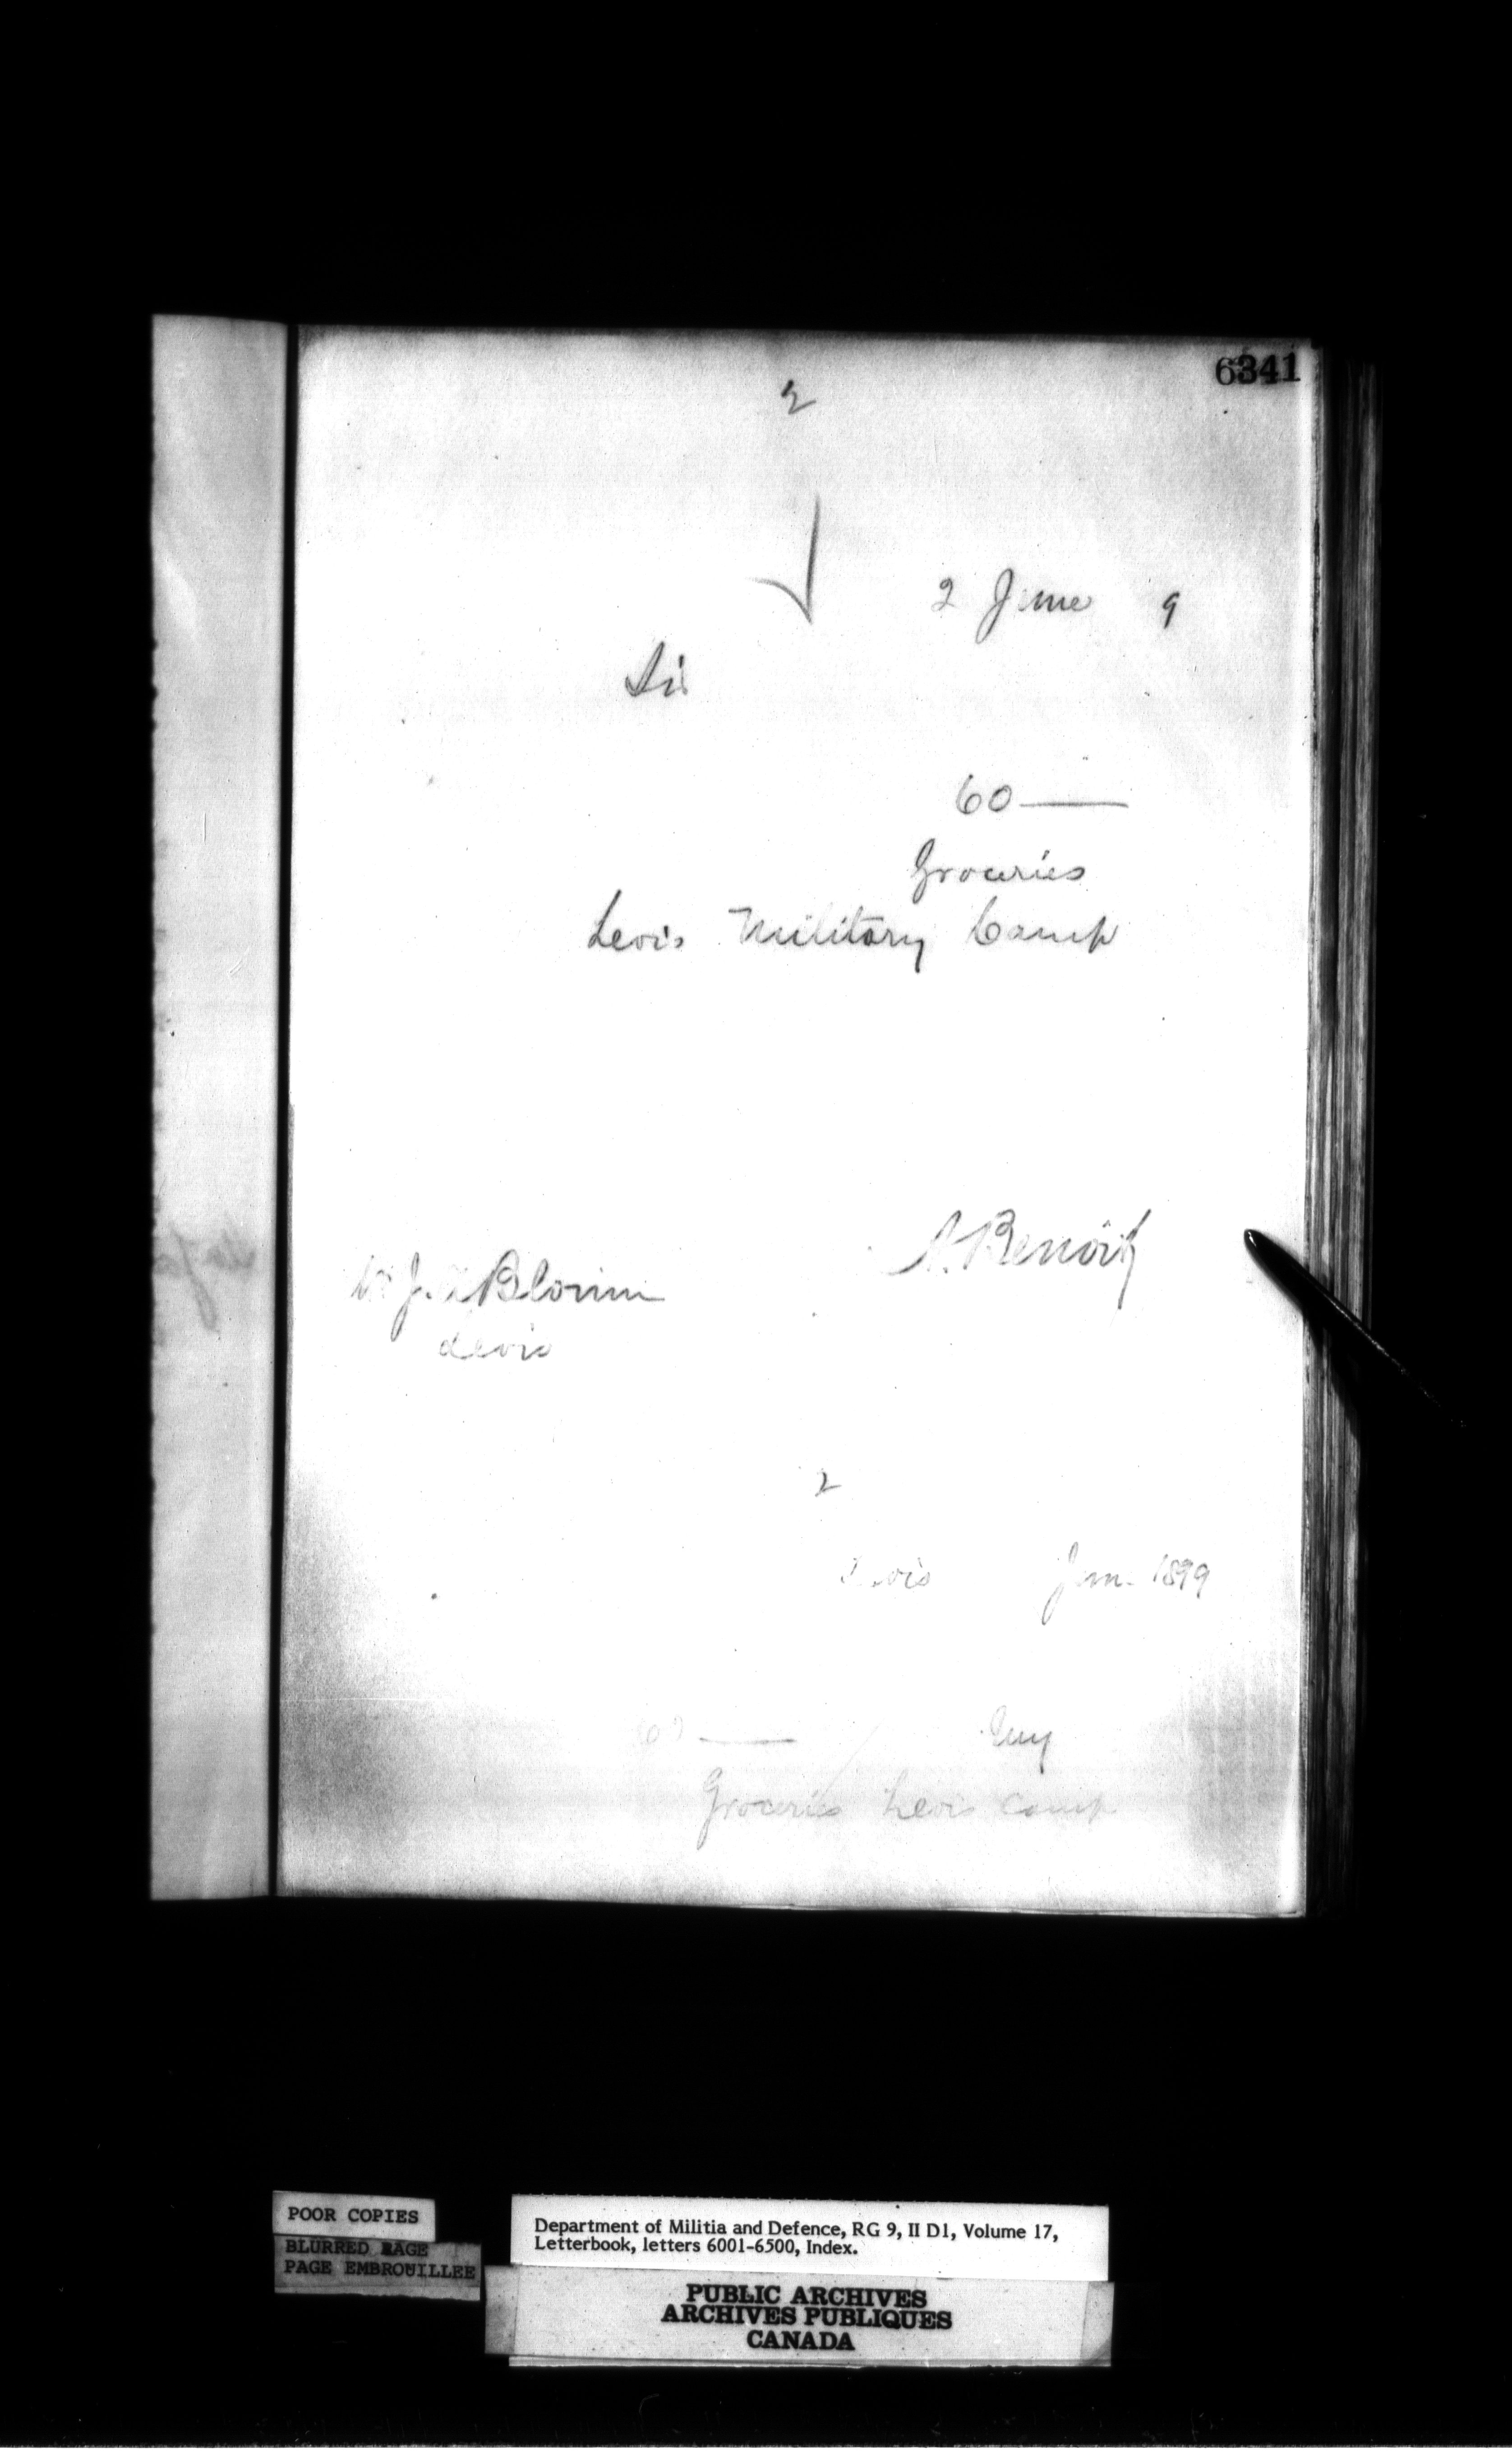 6341
2
2 June 9
Sir
60—
Groceries
Levis Military Camp
A. Benoit
J. A Blouin
Levis
2
Levis Jun. 1899
60—
Groceries Levis Camp
POOR COPIES
BLURRED PAGE
PAGE EMBROUILLEE
Department of Militia and Defence, RG 9, II D1, Volume 17,
Letterbook, letters 6001-6500, Index.
PUBLIC ARCHIVES
ARCHIVES PUBLIQUES
CANADA